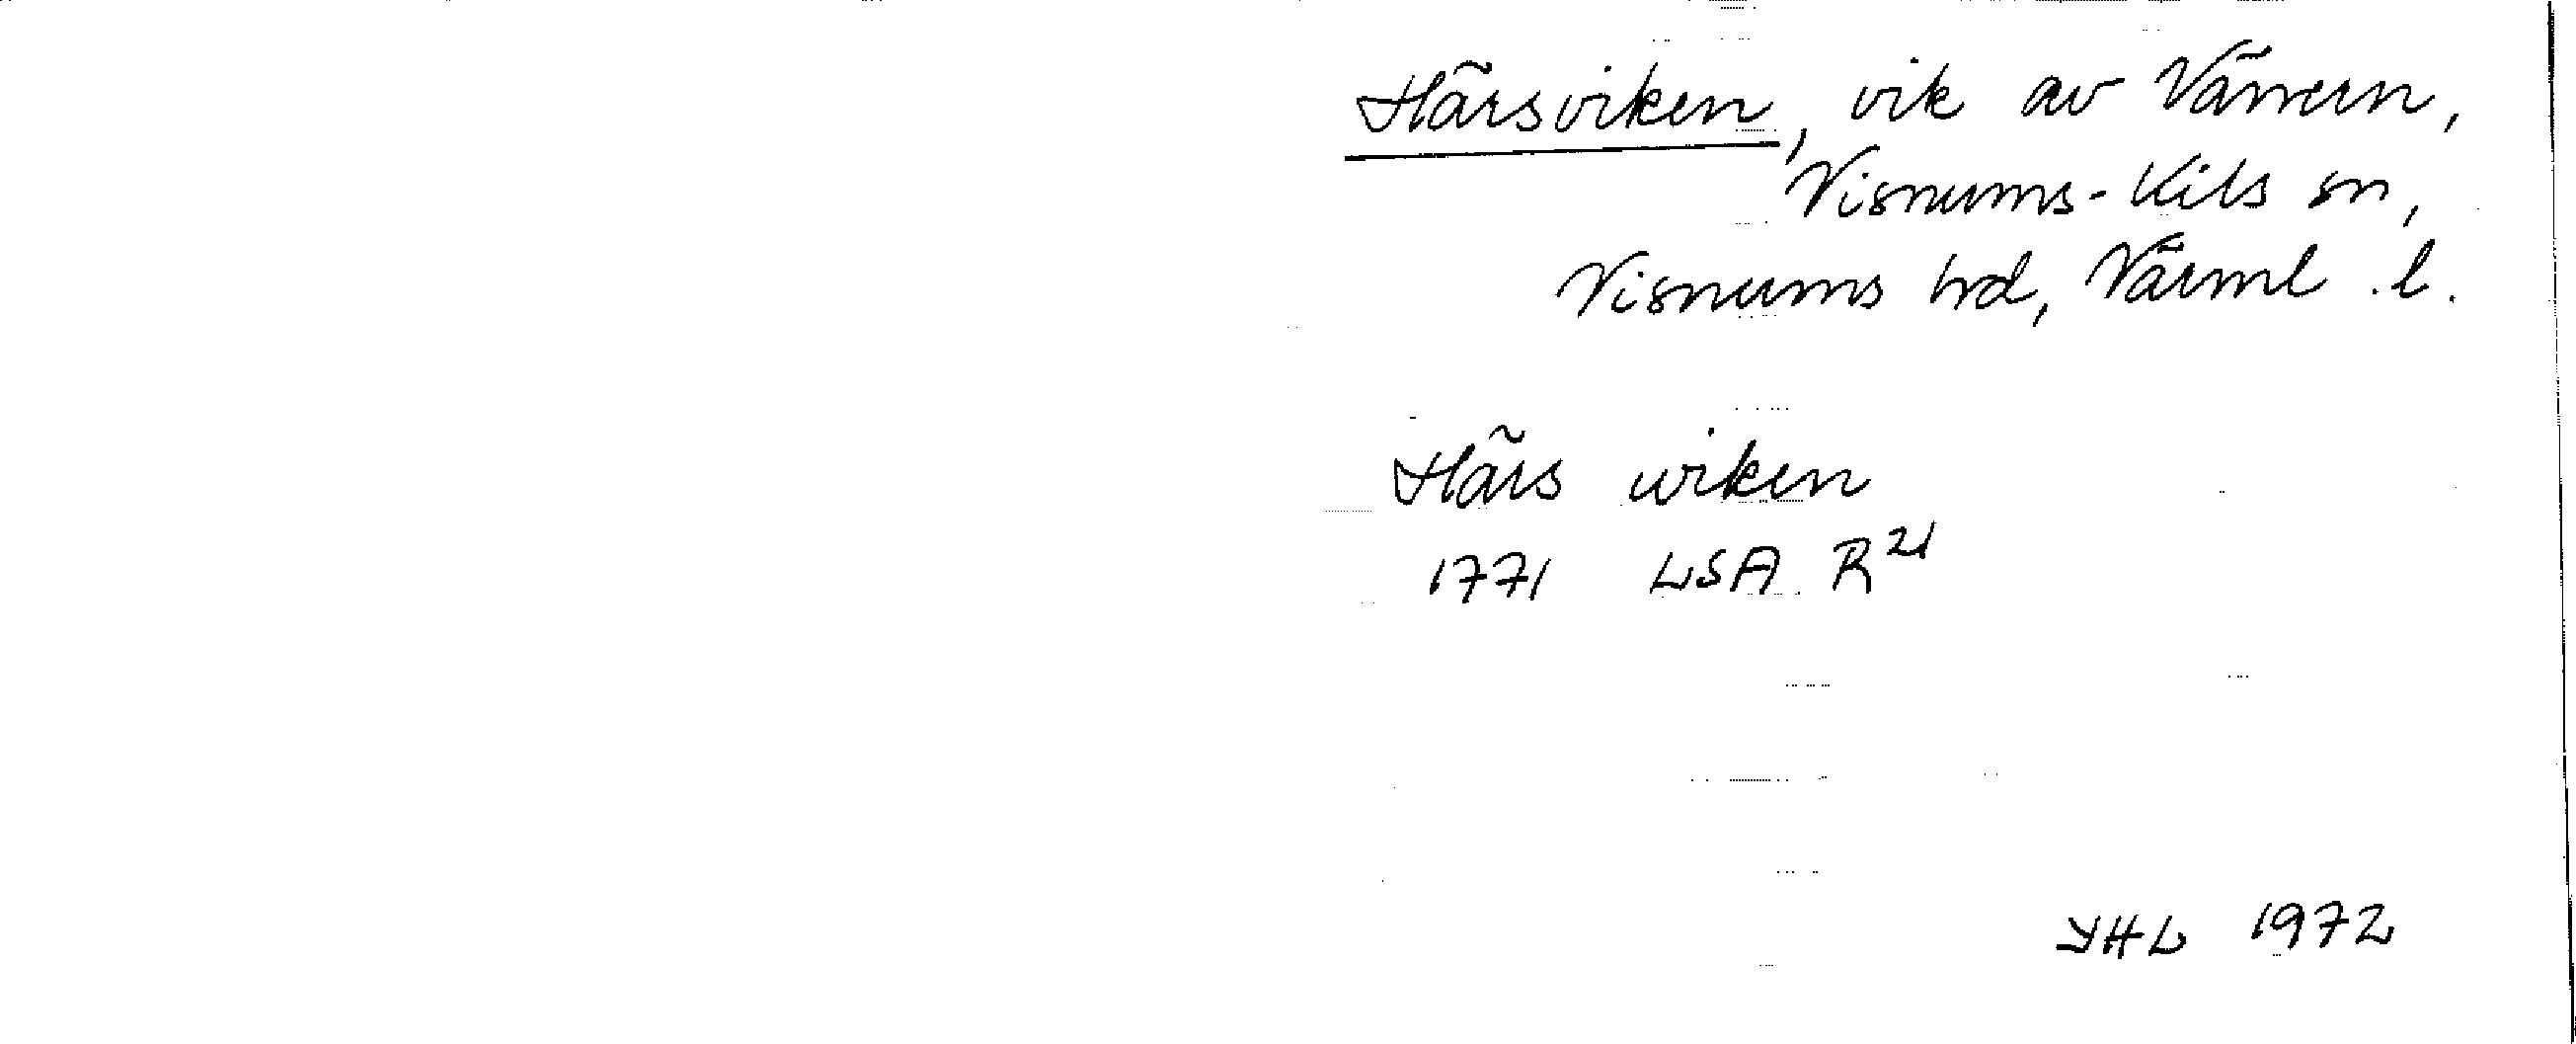 Härsviken, vik av Vänern,
Visnums-Kils sn,
Visnums hd, Värml. l.
Härs wiken
1771 LSA R21
YHL 1972